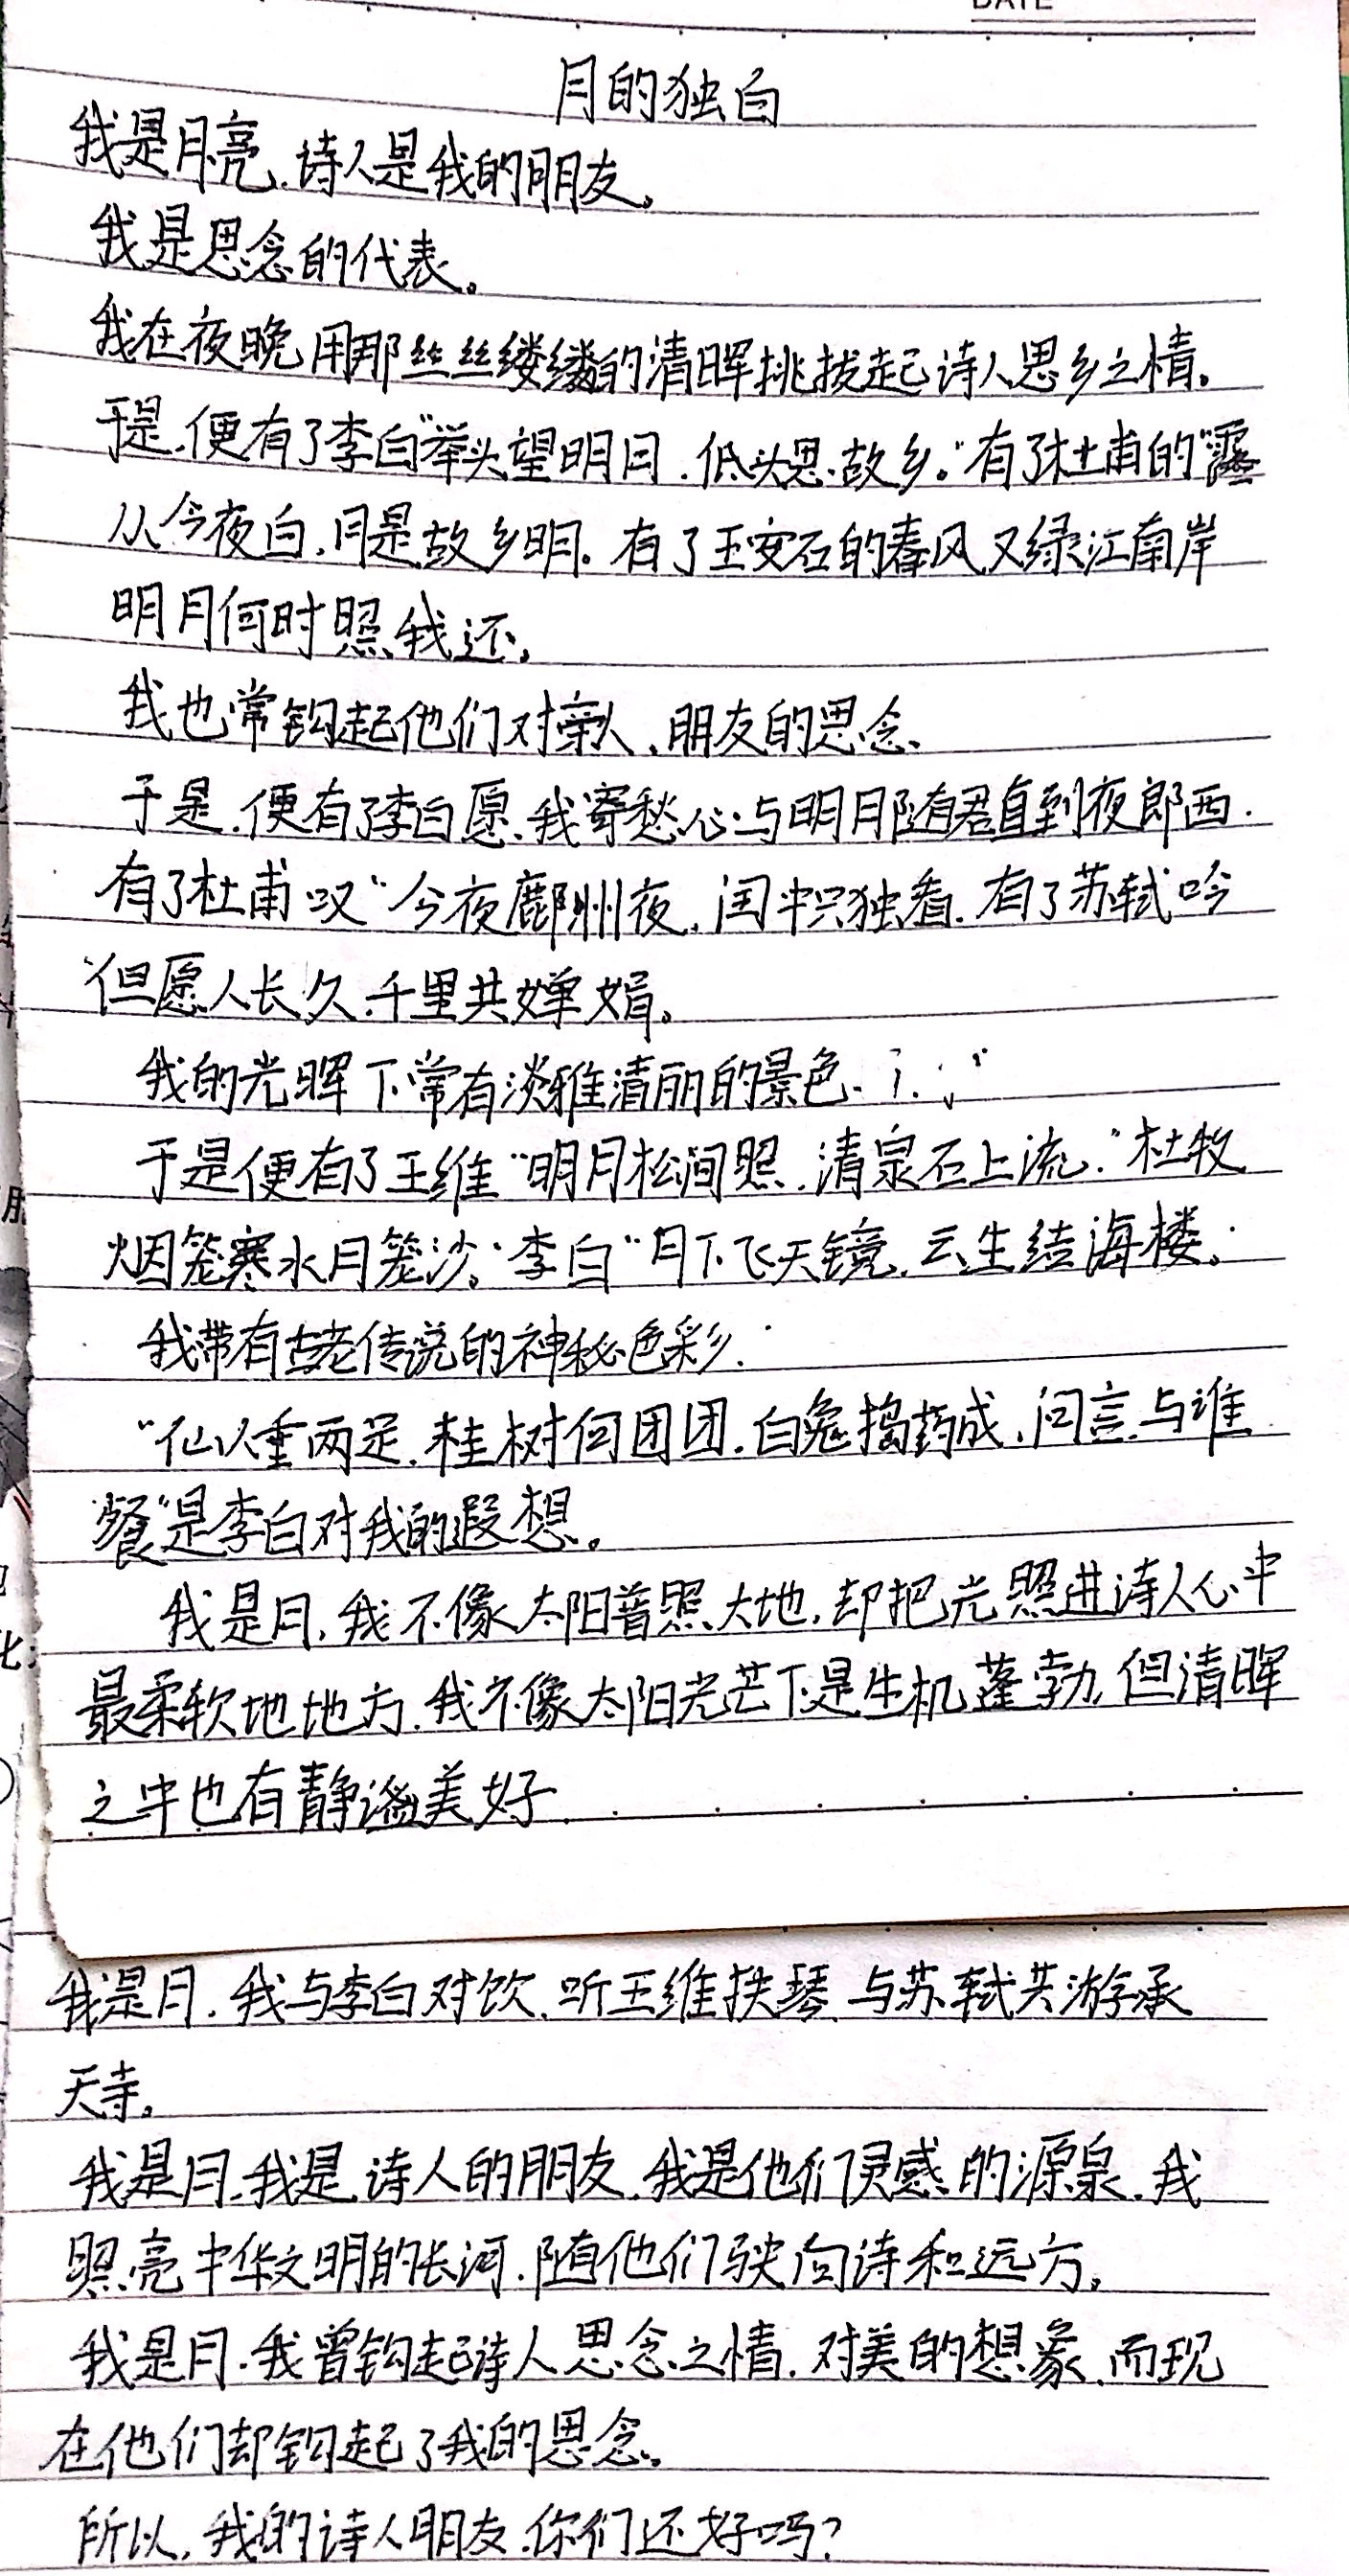 DATE
月的独白
我是月亮,诗人是我的朋友。
我是思念的代表。
我在夜晚用那丝丝缕缕的清晖挑拔起诗人思乡之情。
于是,便有了李白"举头望明月,低头思故乡。"有了杜甫的"露
从今夜白,月是故乡明。有了王安石的春风又绿江南岸
明月何时照我还。
我也常钩起他们对亲人、朋友的思念、
于是,便有了李白愿,我寄愁心与明月随君直到夜郎西.
有了杜甫叹"今夜鄜州夜,闺中只独看.有了苏轼吟
"但愿人长久,千里共婵娟。
我的光晖下常有淡雅清丽的景色.
于是便有了王维"明月松间照,清泉石上流."杜牧
烟笼寒水月笼沙。"李白"月下飞天镜,云生结海楼。
我带有古老传说的神秘色彩.
"仙人垂两足,桂树何团团.白兔捣药成,问言与谁
餐"是李白对我的遐想。
我是月,我不像太阳普照大地,却把光照进诗人心中
最柔软地地方.我不像太阳光芒下是生机蓬勃,但清晖
之中也有静谧美好.
我是月.我与李白对饮,听王维抚琴,与苏轼共游承
天寺。
我是月.我是诗人的朋友.我是他们灵感的源泉.我
照亮中华文明的长河.随他们驶向诗和远方。
我是月.我曾钩起诗人思念之情.对美的想象,而现
在他们却钩起了我的思念。
所以,我的诗人朋友.你们还好吗?